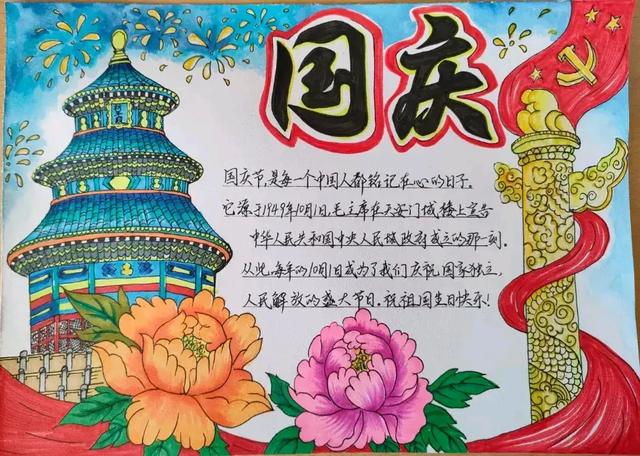 国庆
国庆节,是每一个中国人都铭记在心的日子。
它源于1949年10月1日,毛主席在天安门城楼上宣告
中华人民共和国中央人民城政府成立的那一刻。
从此,每年的10月1日成为了我们庆祝国家独立,
人民解放的盛大节日。祝祖国生日快乐!